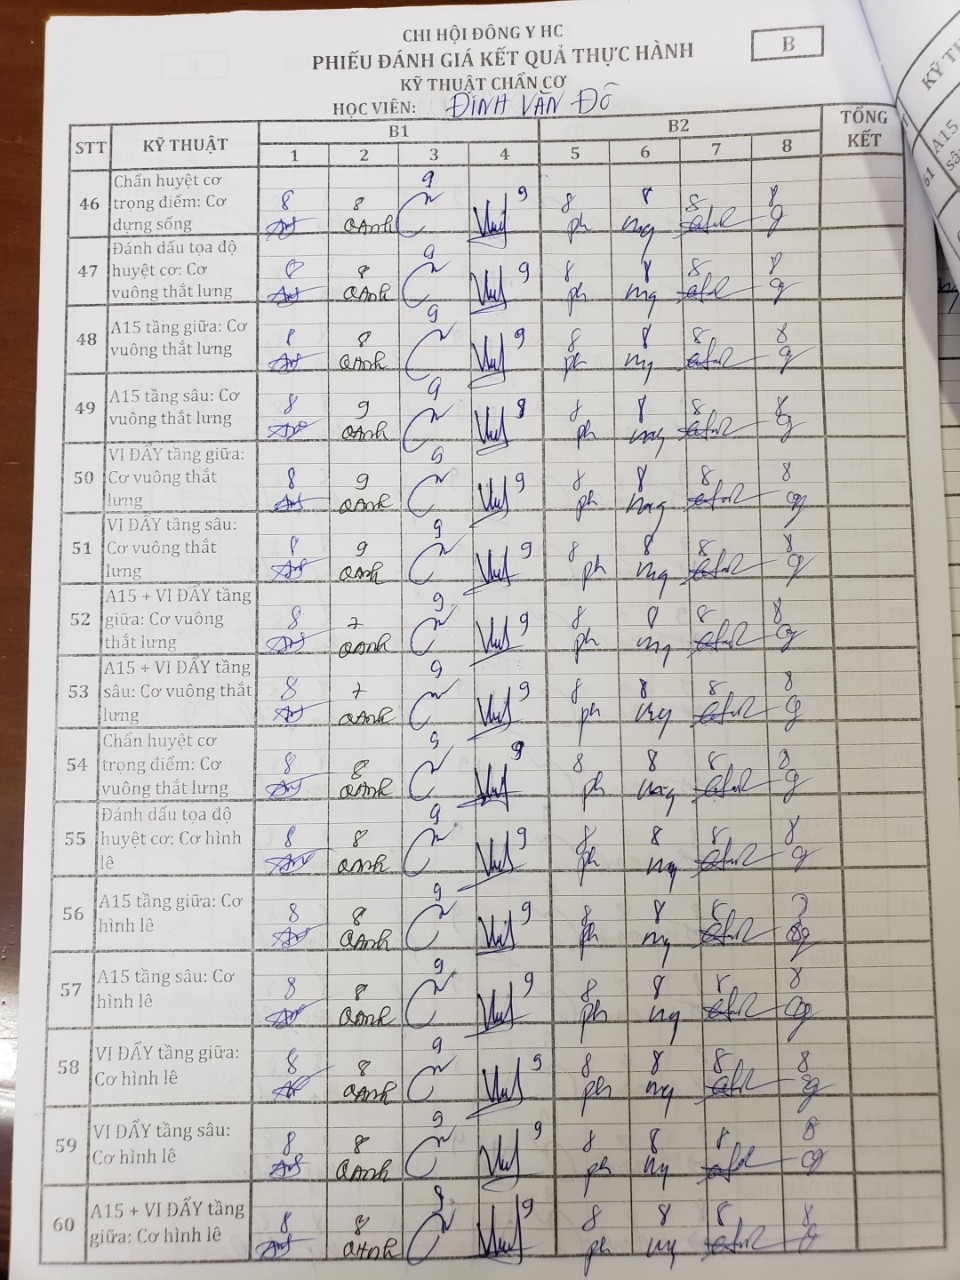 CHI HỘI ĐÔNG Y HC
PHIẾU ĐÁNH GIÁ KẾT QUẢ THỰC HÀNH
B
KỸ THUẬT CHẨN CƠ
HỌC VIÊN: ĐINH VĂN ĐÔ
STT KỸ THUẬT B1 B2 TỔNG KẾT
1 2 3 4 5 6 7 8
46 Chấn huyệt cơ trọng điểm: Cơ dựng sống
8 8 9 9 8 8 8 8
QAnh ph mg
47 Đánh dấu tọa độ huyệt cơ: Cơ vuông thắt lưng
8 8 9 9 8 8 8 8
QAnh ph mg
48 A15 tầng giữa: Cơ vuông thắt lưng
8 8 9 9 8 8 8 8
QAnh ph mg
49 A15 tầng sâu: Cơ vuông thắt lưng
8 9 9 8 8 8 8 8
QAnh ph mg
50 VI ĐẨY tầng giữa: Cơ vuông thắt lưng
8 9 9 9 8 8 8 8
QAnh ph mg
51 VI ĐẨY tầng sâu: Cơ vuông thắt lưng
8 9 9 9 8 8 8 8
QAnh ph mg
52 A15 + VI ĐẨY tầng giữa: Cơ vuông thắt lưng
8 7 9 9 8 8 8 8
QAnh ph mg
53 A15 + VI ĐẨY tầng sâu: Cơ vuông thắt lưng
8 7 9 9 8 8 8 8
QAnh ph mg
54 Chấn huyệt cơ trọng điểm: Cơ vuông thắt lưng
8 8 9 9 8 8 8 8
QAnh ph mg
55 Đánh dấu tọa độ huyệt cơ: Cơ hình lê
8 8 9 9 8 8 8 8
QAnh ph mg
56 A15 tầng giữa: Cơ hình lê
8 8 9 9 8 8 8
QAnh ph mg
57 A15 tầng sâu: Cơ hình lê
8 8 9 9 8 8 8 8
QAnh ph mg
58 VI ĐẨY tầng giữa: Cơ hình lê
8 8 9 9 8 8 8 8
QAnh ph mg
59 VI ĐẨY tầng sâu: Cơ hình lê
8 8 9 9 8 8 8 8
QAnh ph mg
60 A15 + VI ĐẨY tầng giữa: Cơ hình lê
8 8 9 9 8 8 8 8
QAnh ph mg
A15
61